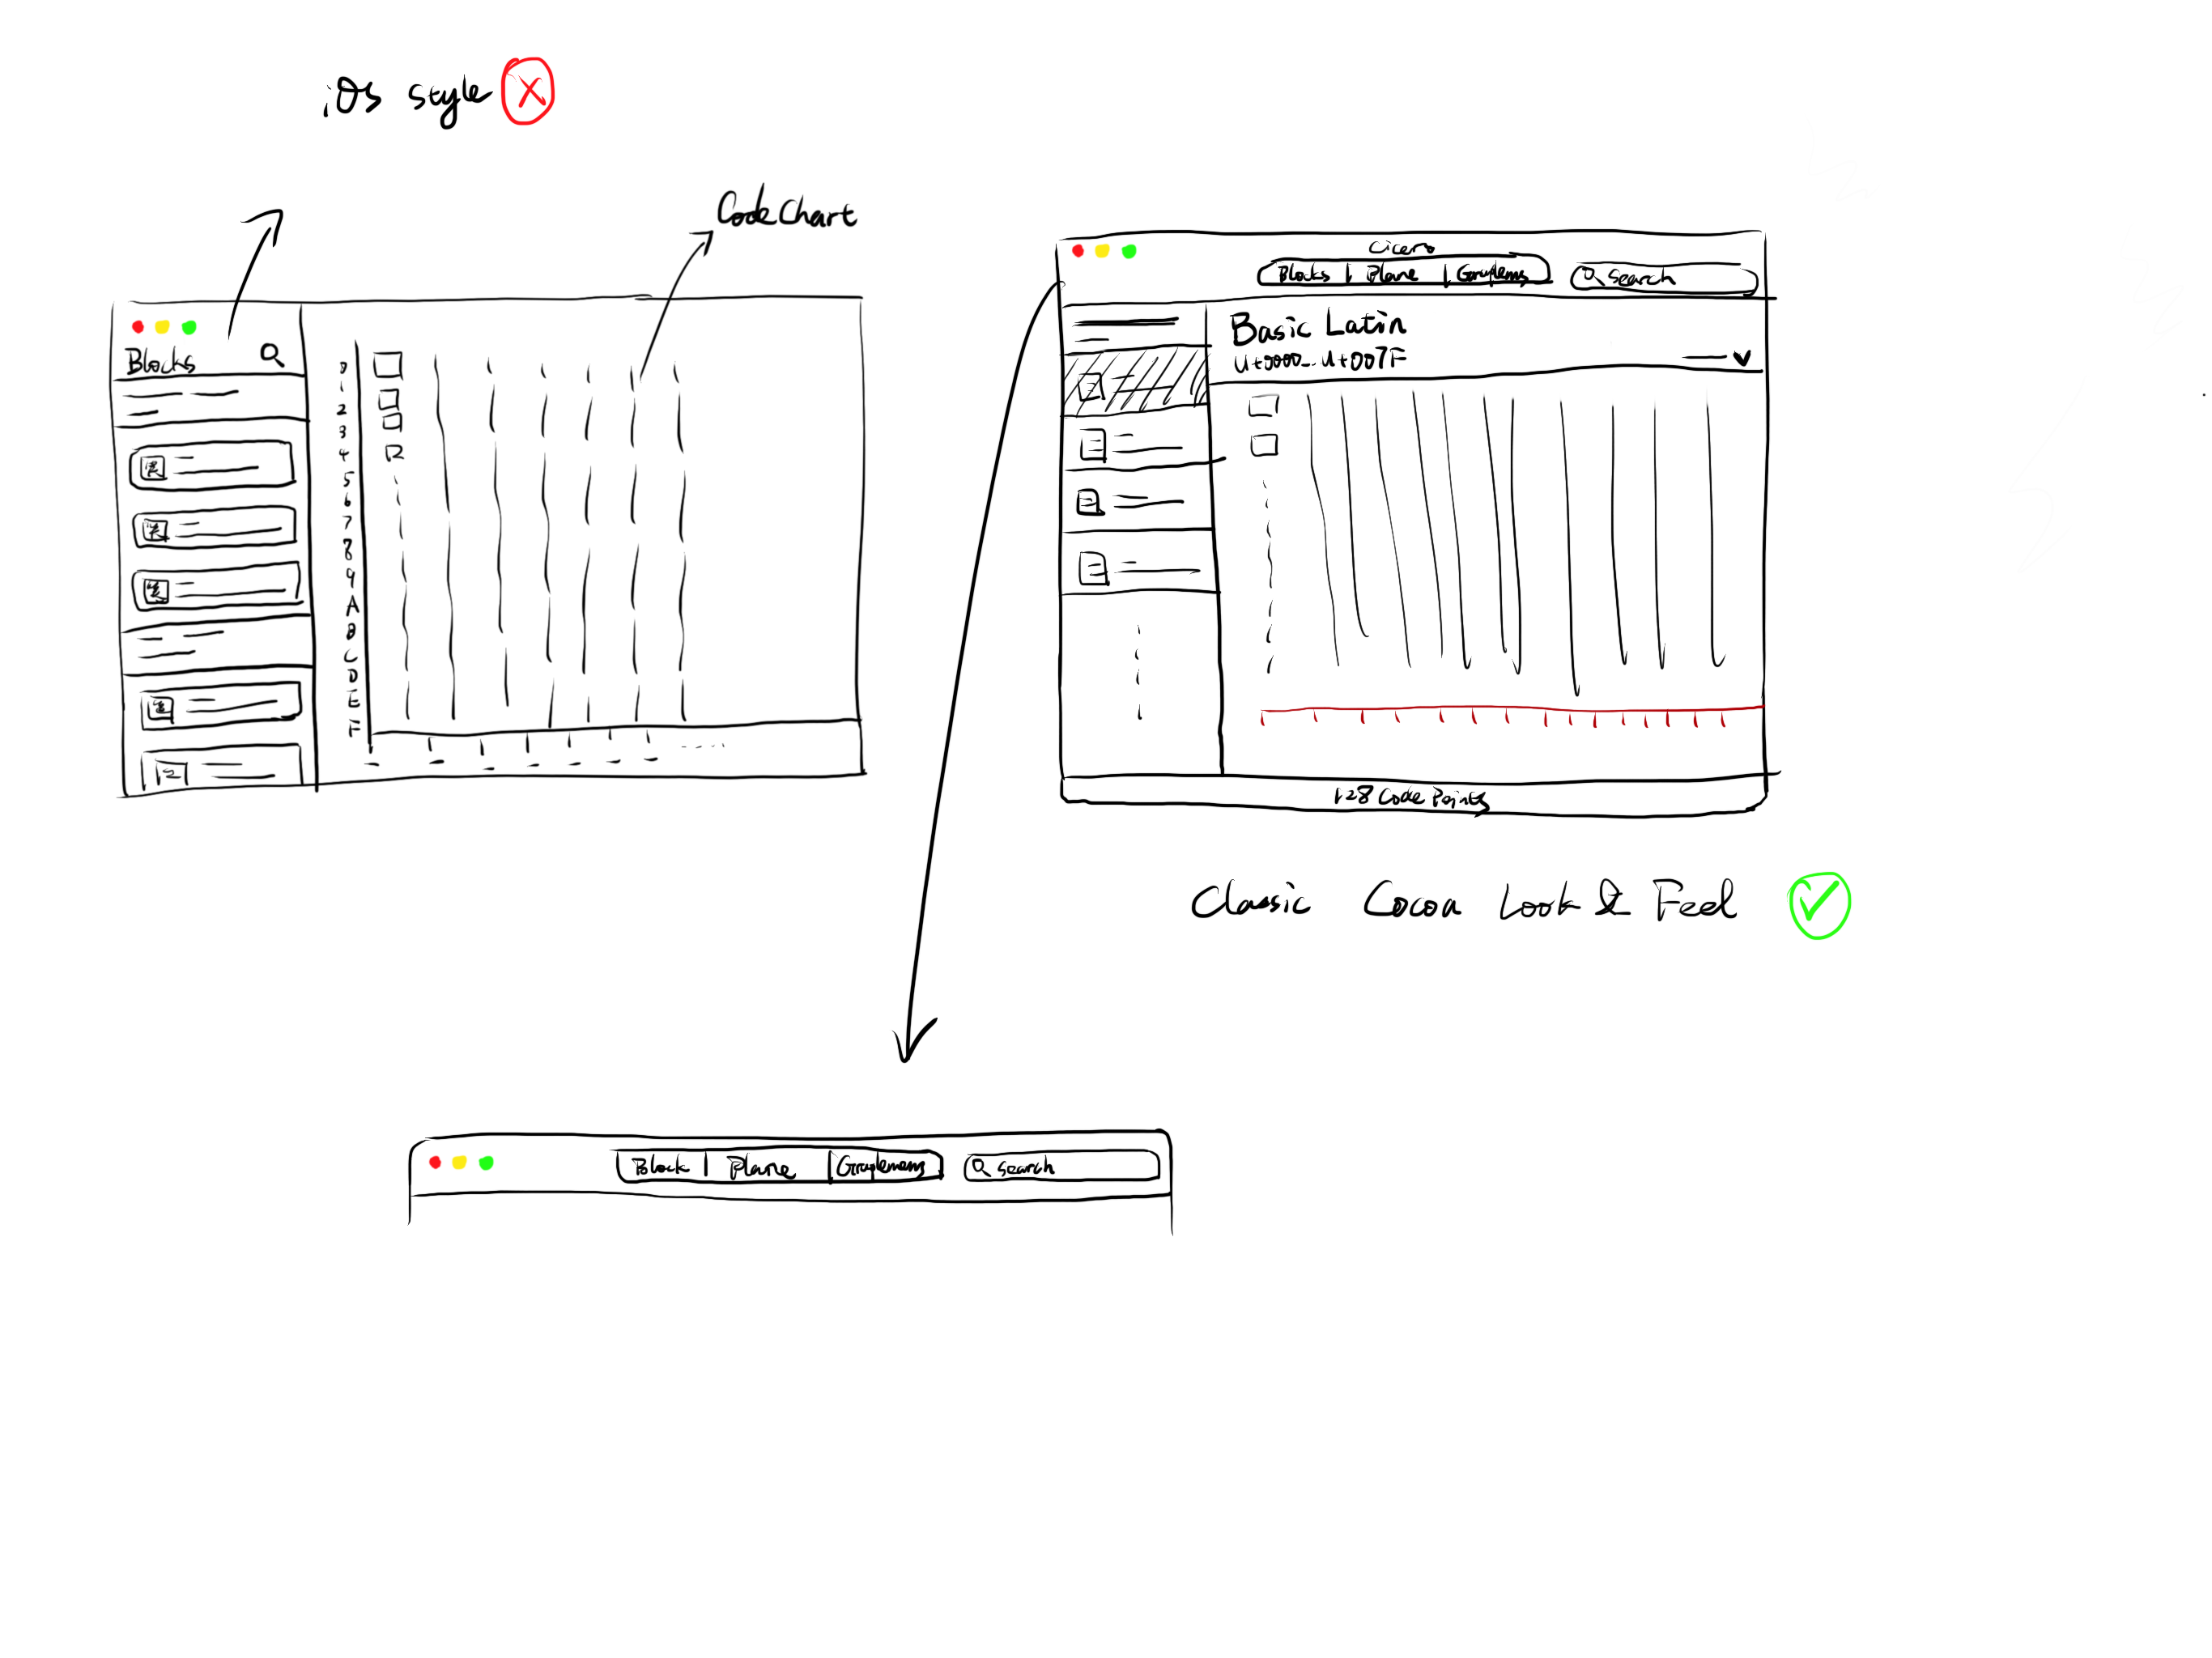 iOS style
Code Chart
Blocks
0
1
2
3
4
5
6
7
8
9
A
B
C
D
E
F
Cicero
Blocks | Plane | Graplems
Search
Basic Latin
U+0000..U+007F
128 Code Points
Classic Cocoa Look & Feel
Block | Plane | Graplemens
Search